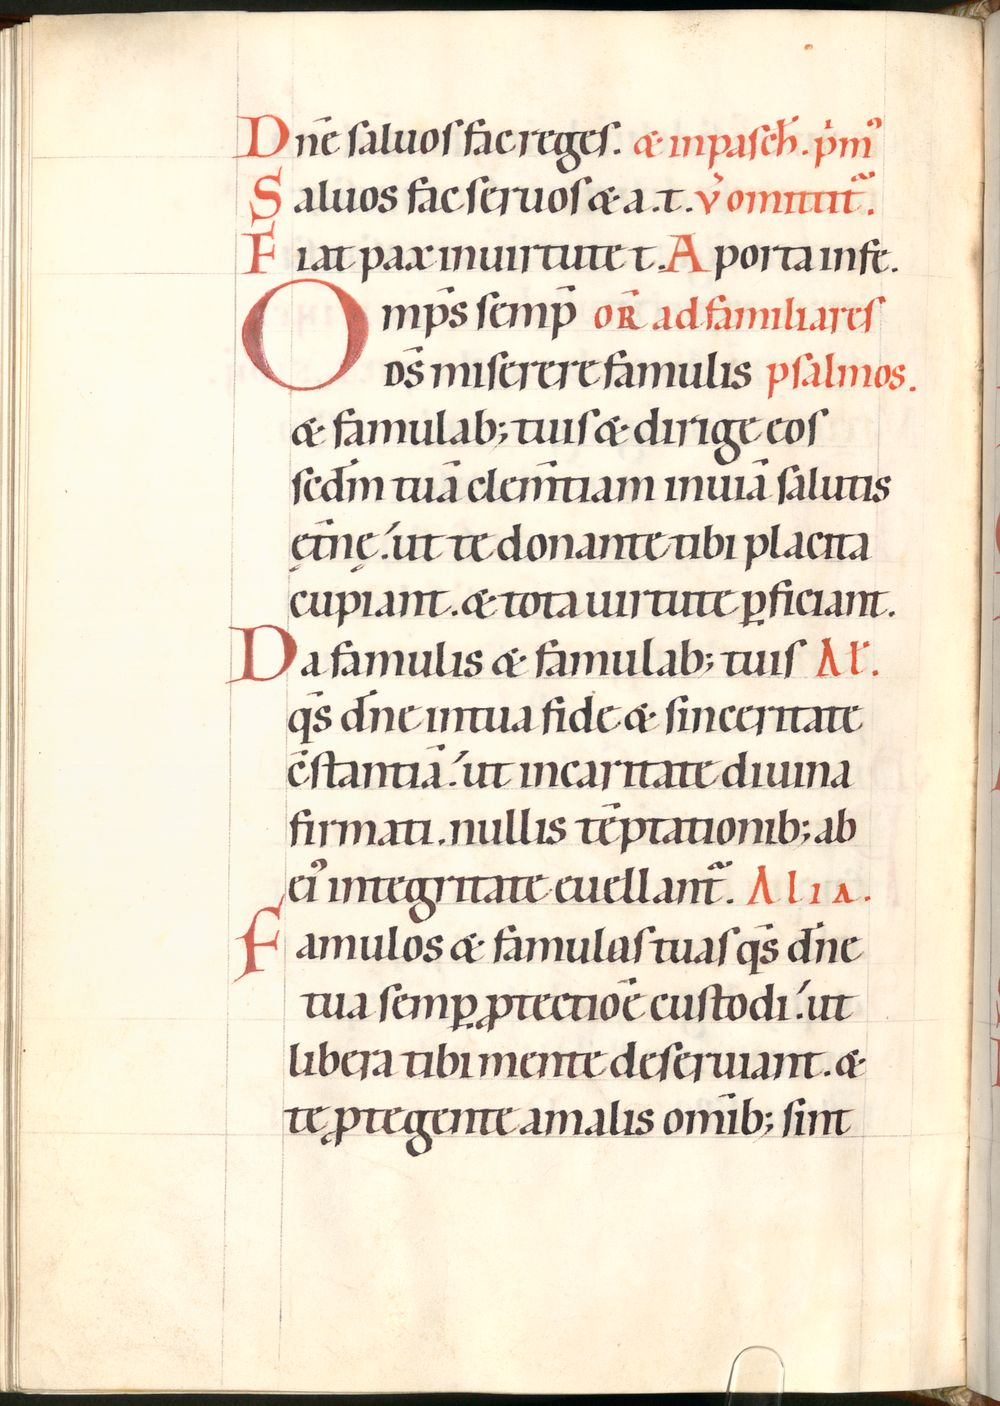 Dn̄e saluos fac reges. & in pasch̄. p̍mꝰ
Saluos fac seruos & a. t. v̉ omittit᷑.
Fiat pax in uirtute t. A porta infe.
Omp̄s semp̄ oꝶ ad familiares
ds̄ miserere famulis psalmos.
& famulab; tuis & dirige eos
scdm̄ tuā clem̄tiam in uiā salutis
ęt̄nę. ut te donante tibi placita
cupiant. & tota uirtute ꝑficiant.
Da famulis & famulab; tuis Aƚ.
qs̄ dn̄e in tua fide & sinceritate
c̄stantiā. ut in caritate diuina
firmati. nullis tēptationib; ab
eiꝰ integritate euellant᷑. Alia.
Famulos & famulas tuas qs̄ dn̄e
tua semꝑ ꝓtectiōe custodi. ut
libera tibi mente deseruiant. &
te ꝓtegente a malis om̄ib; sint